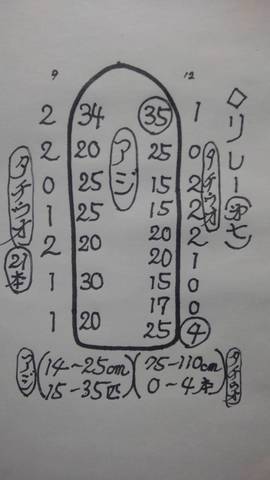 ◇リレー(第七)
9 12
2 34 35 1
2 20 25 0
0 25 15 2
1 25 15 2
2 20 20 2
20 1
1 30 15 0
17 0
1 20 25 4
アジ
タチウオ
タチウオ 21本
アジ (14~25cm) (75~110cm) タチウオ
15~35匹 0~4本